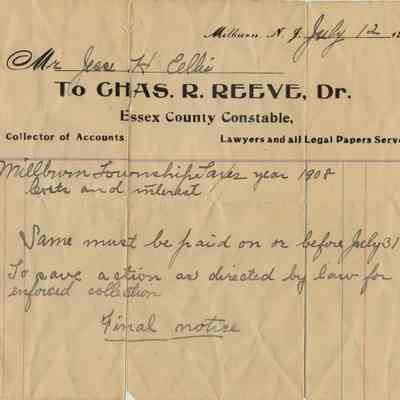 Milburn, N. J. July 12
Mr Jesse H Ellis
To CHAS. R. REEVE, Dr.
Essex County Constable,
Collector of Accounts Lawyers and all Legal Papers Serve
Millburn Township Taxes year 1908
Costs and interest
Same must be paid on or before July 31
To save action as directed by law for
enforced collection
Final notice